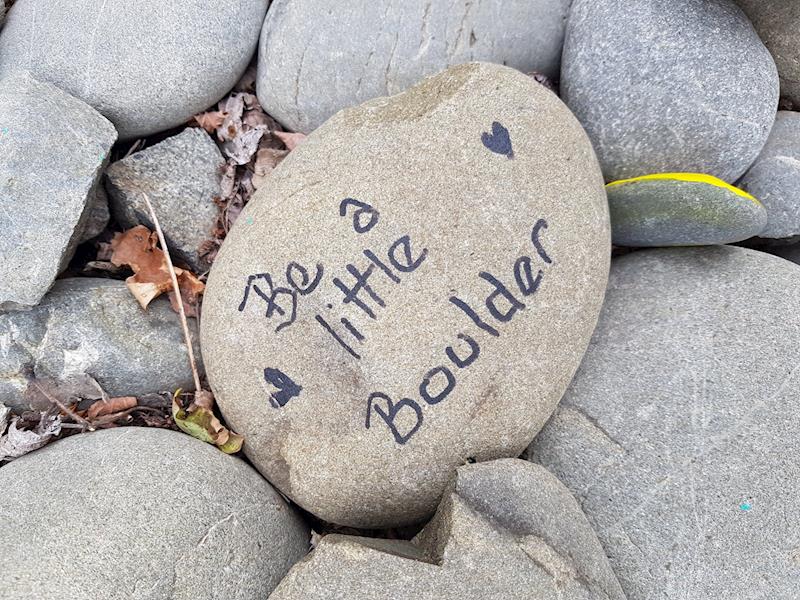 Be a
little
Boulder